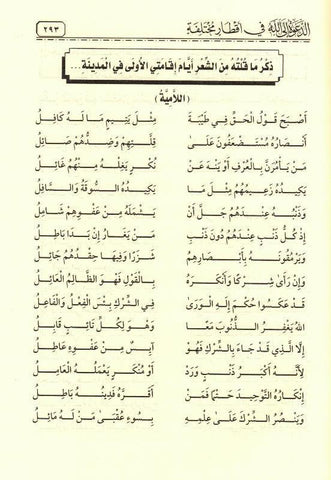 الدعوة إلى الله في أقطار مختلفة
٢٩٣
ذِكْرُ مَا قُلْتُهُ مِنَ الشِّعْرِ أَيَّامَ إِقَامَتِي الْأُولَى فِي الْمَدِينَةِ...
(اللاَّمِيَّة)
أَصْبَحَ قَوْلُ الْحَقِّ فِي طَيْبَةَ مِثْلَ يَتِيمٍ مَا لَهُ كَافِلُ
أَنْصَارُهُ مُسْتَضْعَفُونَ عَلَى قِلَّتِهِمْ وَضِدُّهُمْ صَائِلُ
مَنْ يَأْمُرَنْ بِالْعُرْفِ أَوْ يَنْهَ عَنْ نُكْرٍ يَغِلْهُ مِنْهُمُ غَائِلُ
يَكِيدُهُ زَعِيمُهُمْ مِثْلَ مَا يَكِيدُهُ السُّوقَةُ وَالسَّافِلُ
وَذَنْبُهُ عِنْدَهُمُ جَلَّ أَنْ يَشْمَلَهُ مِنْ عَفْوِهِمْ شَامِلُ
إِذْ كُلُّ ذَنْبٍ عِنْدَهُمْ دُونَ ذَنْبِ مَنْ يَغَارُ إِنْ بَدَا بَاطِلُ
وَيَرْمُقُونَهُ بِأَبْصَارِهِمْ شَزْرًا وَفِيهَا حِقْدُهُمْ جَائِلُ
وَإِنْ رَأَى شِرْكًا وَأَنْكَرَهُ بِالْقَوْلِ فَهْوَ الظَّالِمُ الْعَائِلُ
قَدْ عَكَسُوا حُكْمَ إِلَهِ الْوَرَى فِي الشِّرْكِ بِئْسَ الْفِعْلُ وَالْفَاعِلُ
اللهُ يَغْفِرُ الذُّنُوبَ مَعًا وَهْوَ لِكُلِّ تَائِبٍ قَابِلُ
إِلاَّ الَّذِي قَدْ جَاءَ بِالشِّرْكِ فَهْوَ آيِسٌ مِنْ عَفْوِهِ عَاطِلُ
لِأَنَّهُ أَكْبَرُ ذَنْبٍ وَرَدْ أَوْ مُنْكَرٍ يَعْمَلُهُ الْعَامِلُ
إِنْكَارُهُ التَّوْحِيدَ حَتْمًا فَمَنْ أَقَرَّهُ فَدِينُهُ بَاطِلُ
وَيَنْصُرُ الشِّرْكَ عَلَى عِلْمِهِ بِسُوءِ عُقْبَى مَنْ لَهُ مَائِلُ